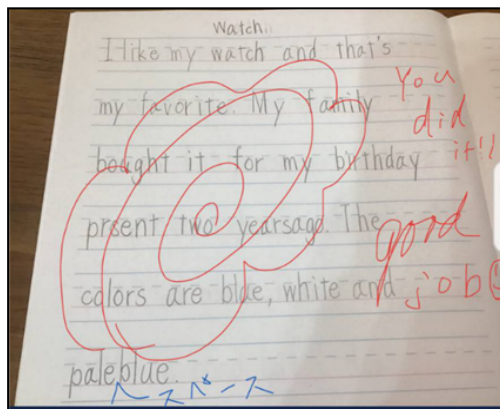 Watch
I like my watch and that's
my favorite. My family
bought it for my birthday
prsent two yearsago. The
colors are blue, white and
paleblue.
You
did
it!!
good
job
スペース